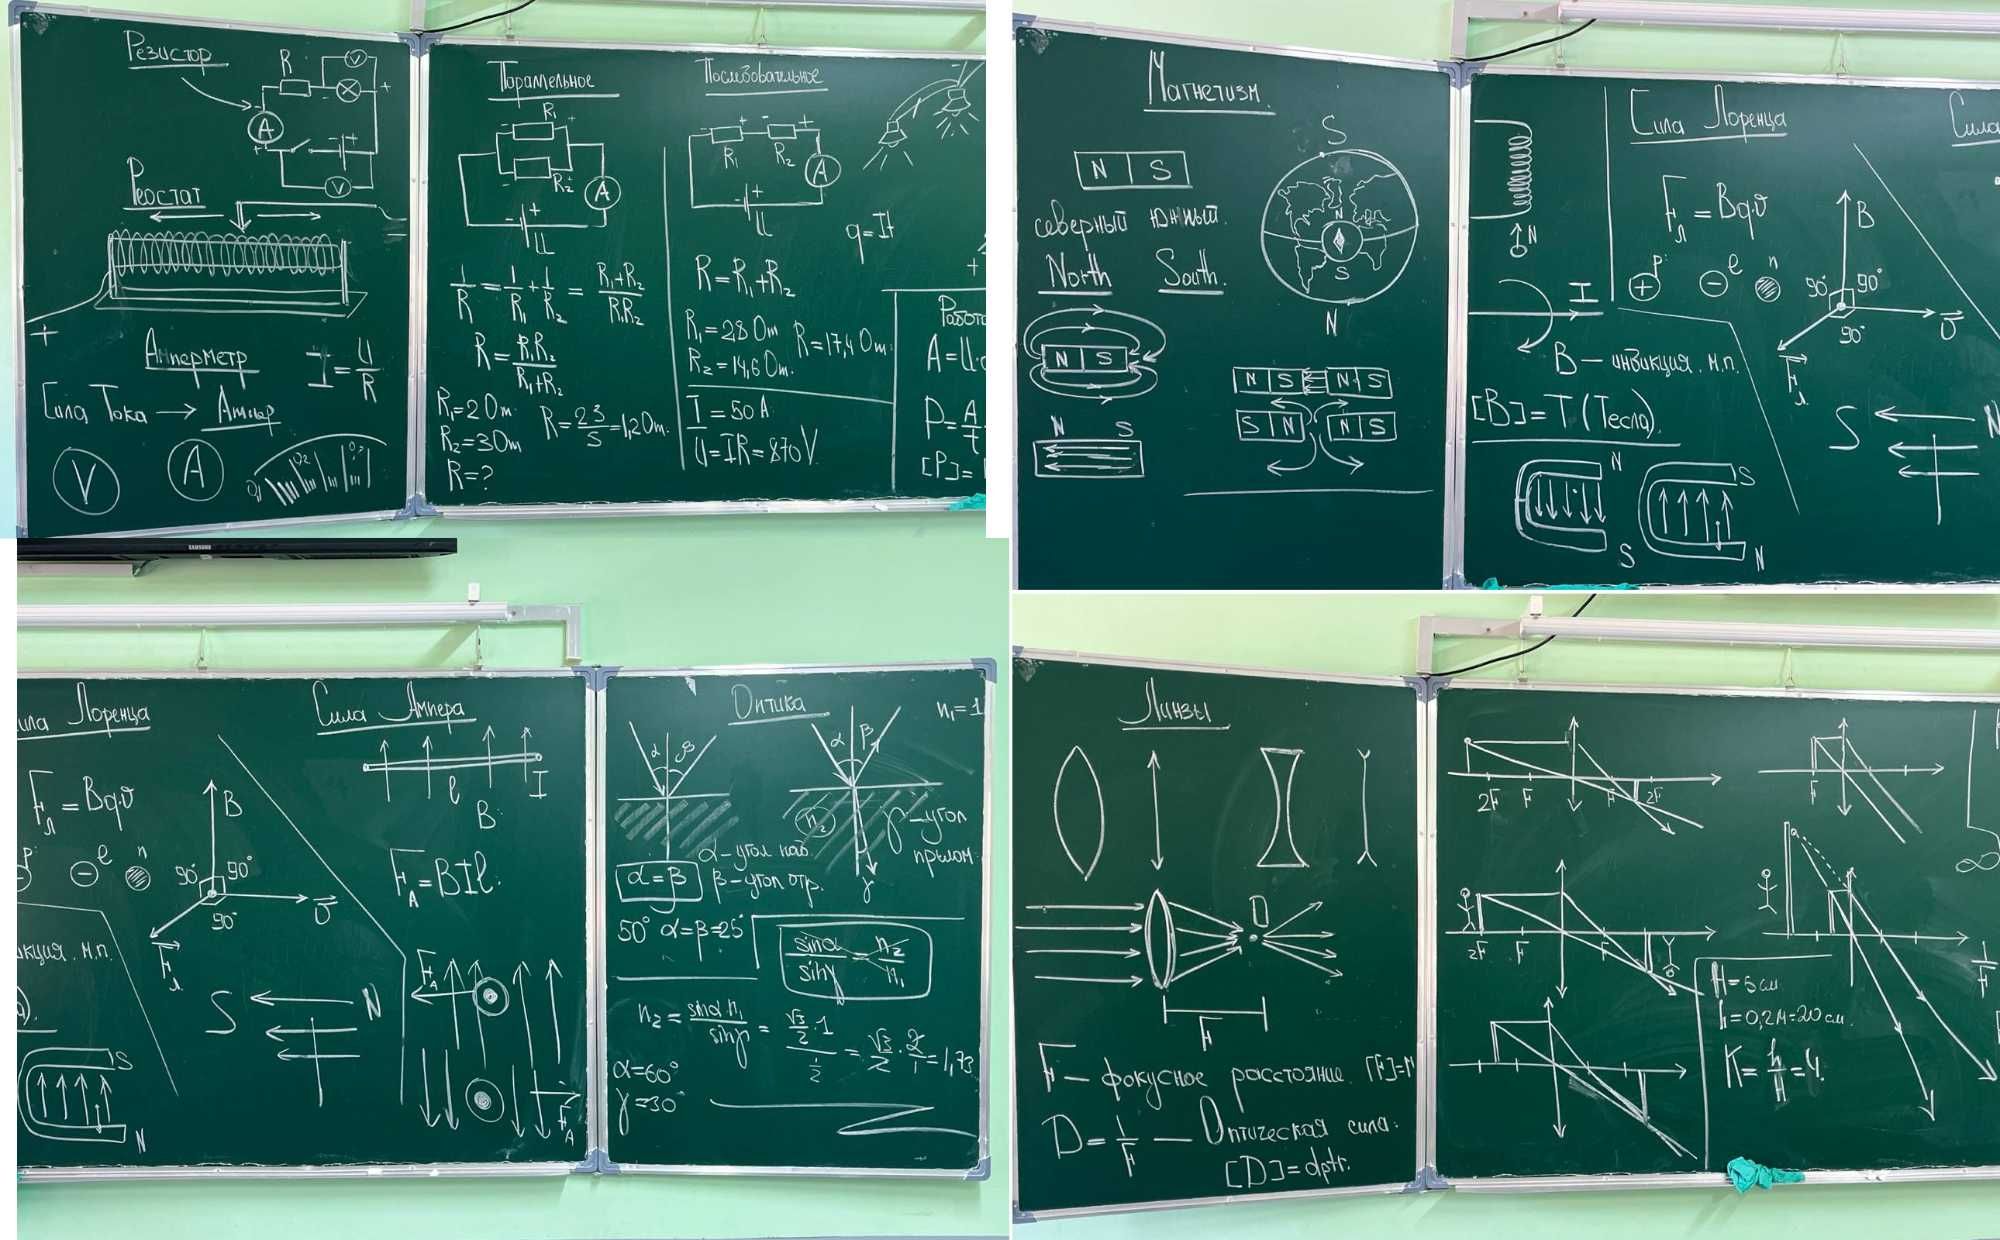 Резистор
R
V
+
-
A
+
+
V
Реостат
+
Амперметр
I = U/R
Сила Тока → Ампер
V
A
Параллельное
R₁
- +
R₂
A
- +
U
1/R = 1/R₁ + 1/R₂ = R₁+R₂/R₁R₂
R = R₁R₂/R₁+R₂
R₁=2 Om
R₂=3 Om
R=?
R = 2·3/5 = 1,2 Om.
Последовательное
- + - +
R₁ R₂
A
- +
U
R = R₁ + R₂
R₁ = 2,8 Om
R₂ = 14,6 Om.
R = 17,4 Om.
I = 50 A
U = IR = 870V.
q = It
Работа
A = U·
P = A/t
[P] =
Магнетизм.
N S
северный южный.
North South.
N S
N S
S
N
S
N
N S N S
S N N S
N
I
Сила Лоренца
Сила
Fл = Bqυ
p⁺ e n
+ -
B
90° 90°
90°
υ
Fл
B – индукция. м.п.
[B] = T (Тесла).
S N
N
S
S
N
SAMSUNG
ила Лоренца
Fл = Bqυ
p⁺ e n
-
B
90° 90°
90°
υ
Fл
укция. м.п.
S N
S
N
Сила Ампера
l I
B.
F_A = BIl.
F_A
F_A
Оптика
n₁ = 1
α β
α β
n₂
γ
γ – угол
прелом.
α – угол пад.
β – угол отр.
α = β
50° α=β=25°
sinα/sinγ = n₂/n₁
n₂ = sinα·n₁/sinγ = √3/2·1 / 1/2 = √3/2 · 2/1 = 1,73
α = 60°
γ = 30°
Линзы
D
F
F – фокусное расстояние. [F]=м
D = 1/F – Оптическая сила.
[D] = dptr.
2F F F 2F
F
2F F F
H = 5 см
h = 0,2м = 20 см.
K = h/H = 4.
∞
1/F